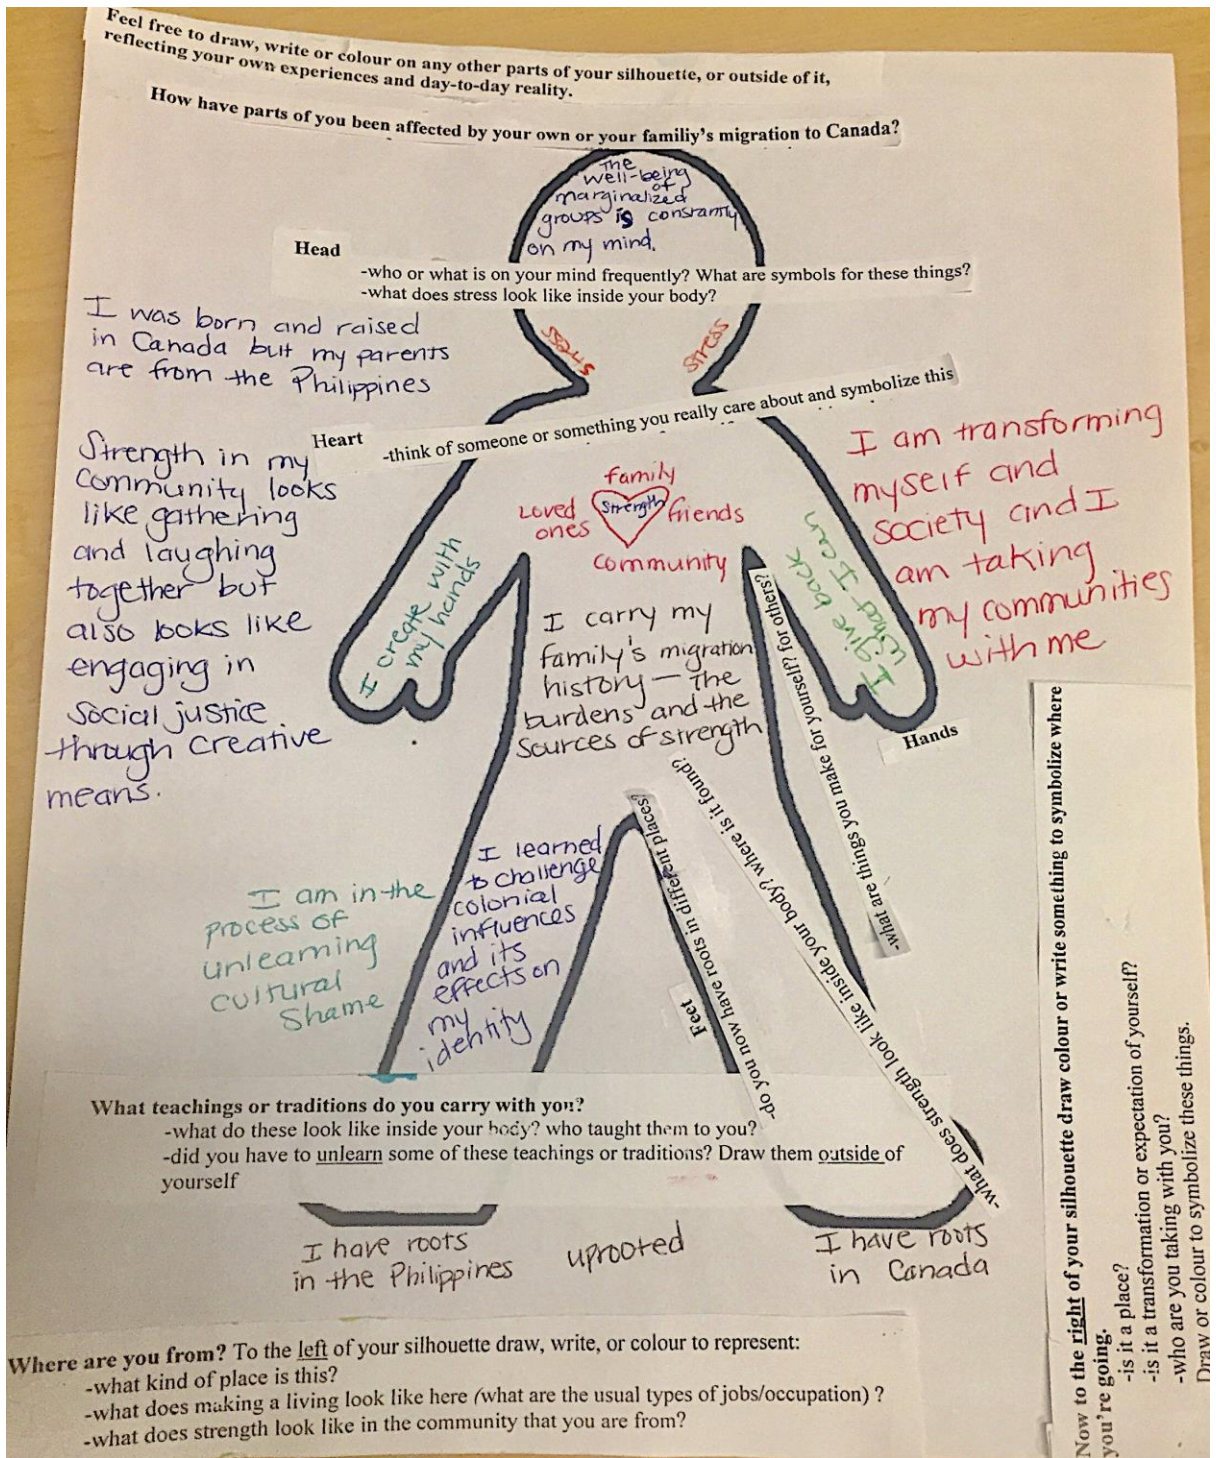 Feel free to draw, write or colour on any other parts of your silhouette, or outside of it,
reflecting your own experiences and day-to-day reality.
How have parts of you been affected by your own or your familiy's migration to Canada?
The
well-being
of
marginalized
groups is constantly
on my mind.
Head
-who or what is on your mind frequently? What are symbols for these things?
-what does stress look like inside your body?
stress
stress
I was born and raised
in Canada but my parents
are from the Philippines
Heart
-think of someone or something you really care about and symbolize this
Strength in my
community looks
like gathering
and laughing
together but
also looks like
engaging in
social justice
through creative
means.
family
Loved
ones
Strength
friends
community
I create with
my hands
I give back
what I can
I am transforming
myself and
society and I
am taking
my communities
with me
I carry my
family's migration
history — the
burdens and the
sources of strength
Hands
-what are things you make for yourself? for others?
-what does strength look like inside your body? where is it found?
Feet
-do you now have roots in different places?
I learned
to challenge
colonial
influences
and its
effects on
my
identity
I am in the
process of
unlearning
cultural
Shame
What teachings or traditions do you carry with you?
-what do these look like inside your body? who taught them to you?
-did you have to unlearn some of these teachings or traditions? Draw them outside of
yourself
I have roots
in the Philippines
uprooted
I have roots
in Canada
Where are you from? To the left of your silhouette draw, write, or colour to represent:
-what kind of place is this?
-what does making a living look like here (what are the usual types of jobs/occupation) ?
-what does strength look like in the community that you are from?
Now to the right of your silhouette draw colour or write something to symbolize where
you're going.
-is it a place?
-is it a transformation or expectation of yourself?
-who are you taking with you?
Draw or colour to symbolize these things.